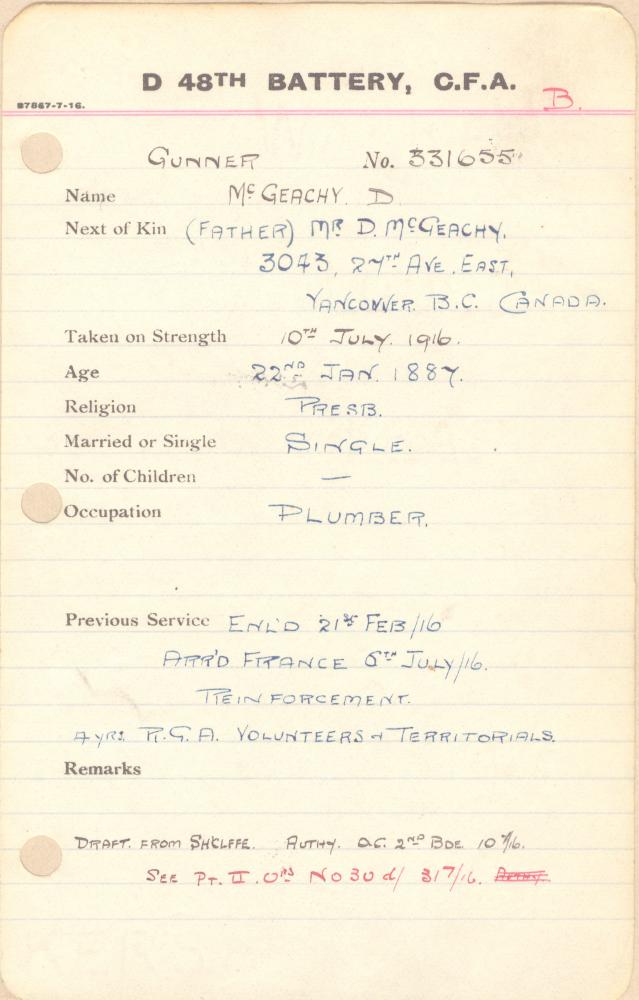 D 48TH BATTERY, C.F.A.
B.
97867-7-16.
GUNNER No. 331655
Name McGEACHY. D
Next of Kin (FATHER) MR D. McGEACHY.
3043, 27TH AVE. EAST,
VANCOUVER. B.C. CANADA.
Taken on Strength 10TH JULY. 1916.
Age 22ND JAN. 1887.
Religion PRESB.
Married or Single SINGLE.
No. of Children —
Occupation PLUMBER.
Previous Service ENL'D 21st FEB/16
ARR'D FRANCE 6TH JULY/16.
REINFORCEMENT.
4 yrs. R.G.A. VOLUNTEERS & TERRITORIALS.
Remarks
DRAFT. FROM SH'CLFFE. AUTHY. O.C. 2ND BDE. 10 7/16.
SEE PT. II. ORS No 30 d/ 317/16.